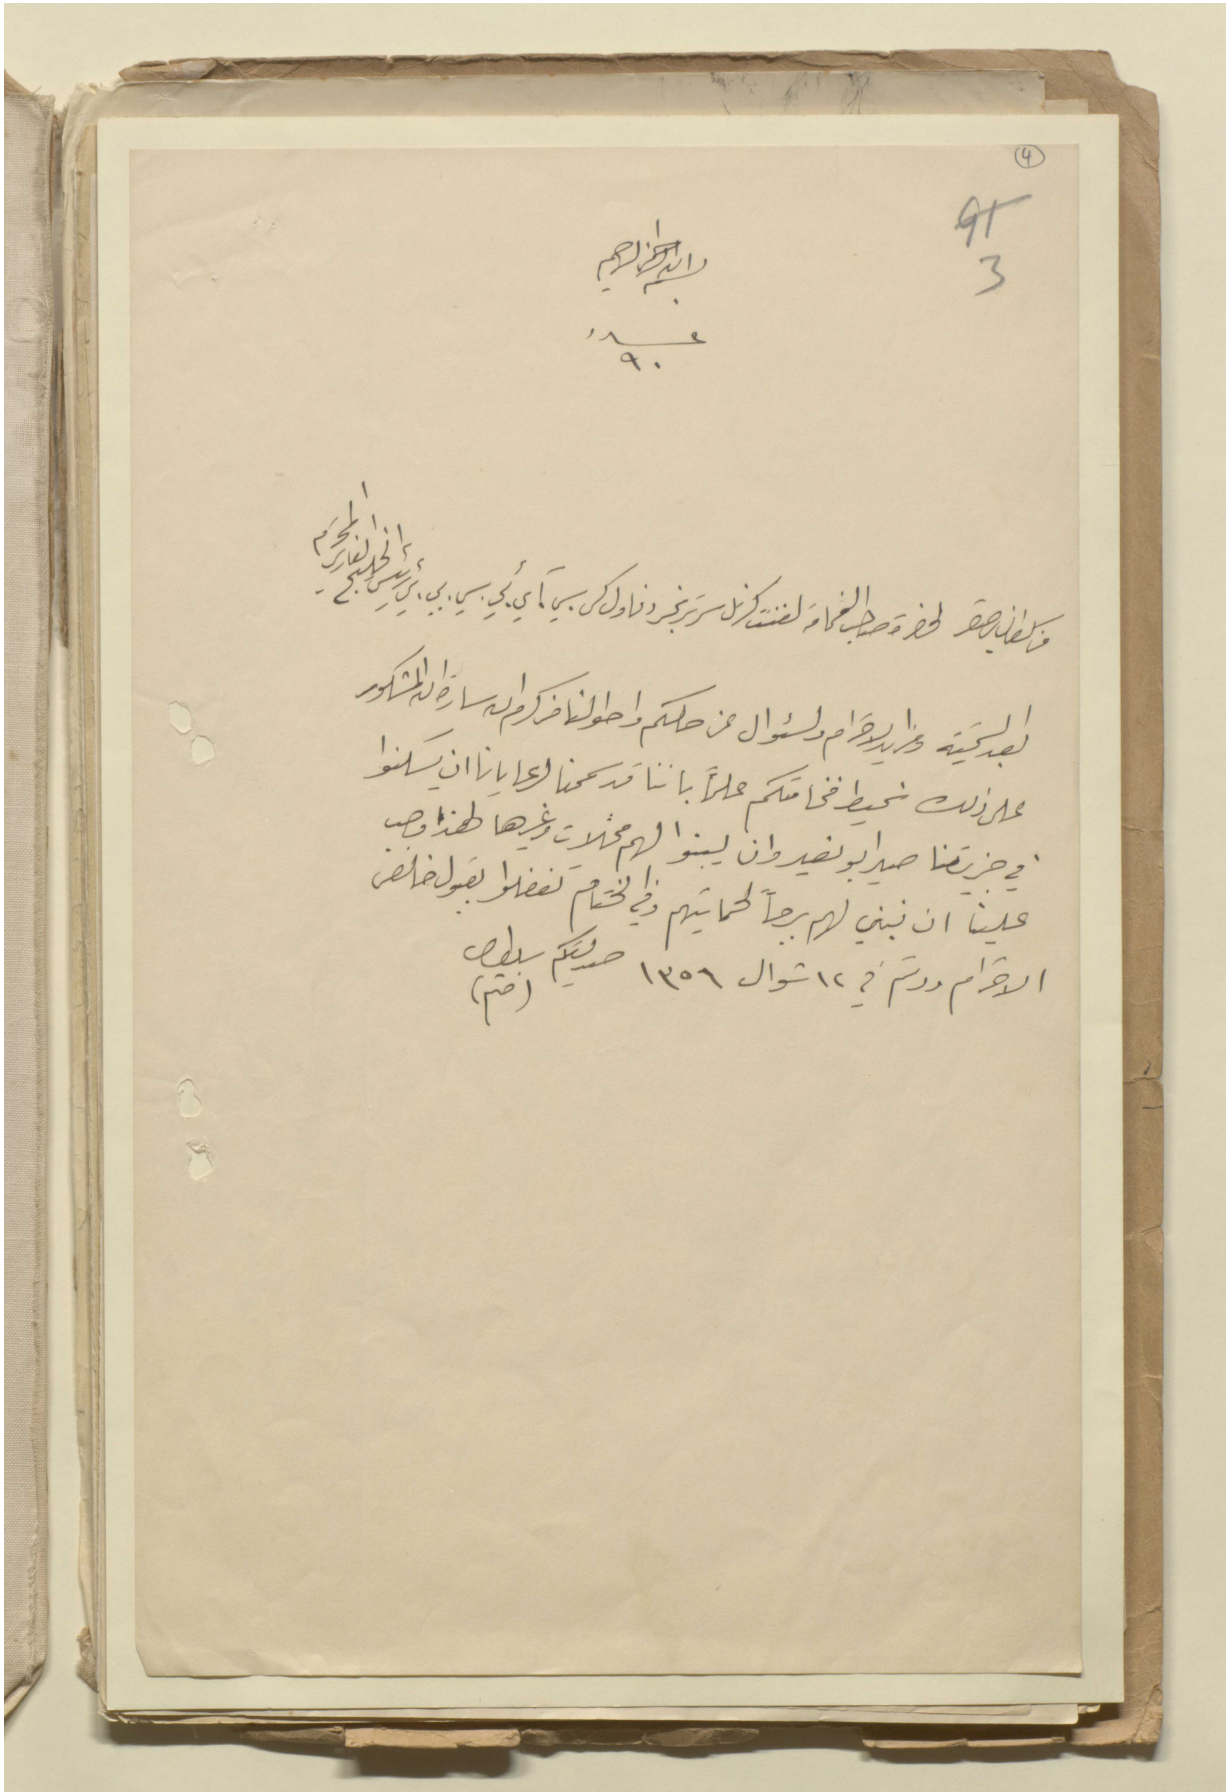 4
9T
3
بسم الله الرحمن الرحيم
عدد
٩٠
من سلطان بن صقر لحضرة صاحب الفخامة لفتننت كرنل سر ترنجرد فاول كي سي آي ئي سي بي ئي رئيس الخليج الفارسي المحترم
بعد التحية ومزيد الاحترام والسئوال عن حالكم واحوالنا من كرم الله سارة الله المشكور
على ذلك نحيط فخامتكم علماً باننا قد سمحنا لرعايانا ان يسكنوا
في جزيرتنا صير ابو نعير وان يبنوا لهم محلات وغيرها لهذا وجب
علينا ان نبني لهم برجاً لحمايتهم وفي الختام تفضلوا بقبول خالص
الاحترام ودمتم في ١٢ شوال ١٣٥٦ صديقكم سلطان
(ختم)